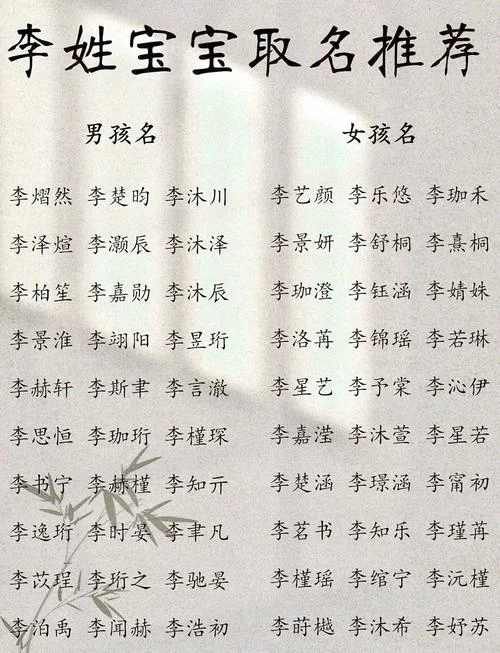 李姓宝宝取名推荐
男孩名 女孩名
李熠然 李楚昀 李沐川 李艺颜 李乐悠 李珈禾
李泽煊 李灏辰 李沐泽 李景妍 李舒桐 李熹桐
李柏笙 李嘉勋 李沐辰 李珈澄 李钰涵 李婧姝
李景淮 李翊阳 李昱珩 李洛苒 李锦瑶 李若琳
李赫轩 李斯聿 李言澈 李星艺 李予棠 李沁伊
李思恒 李珈珩 李槿琛 李嘉滢 李沐萱 李星若
李书宁 李赫槿 李知亓 李楚涵 李璟涵 李甯初
李逸珩 李时晏 李聿凡 李茗书 李知乐 李瑾苒
李苡珵 李珩之 李驰晏 李槿瑶 李绾宁 李沅槿
李泊禹 李闻赫 李浩初 李莳樾 李沐希 李妤苏